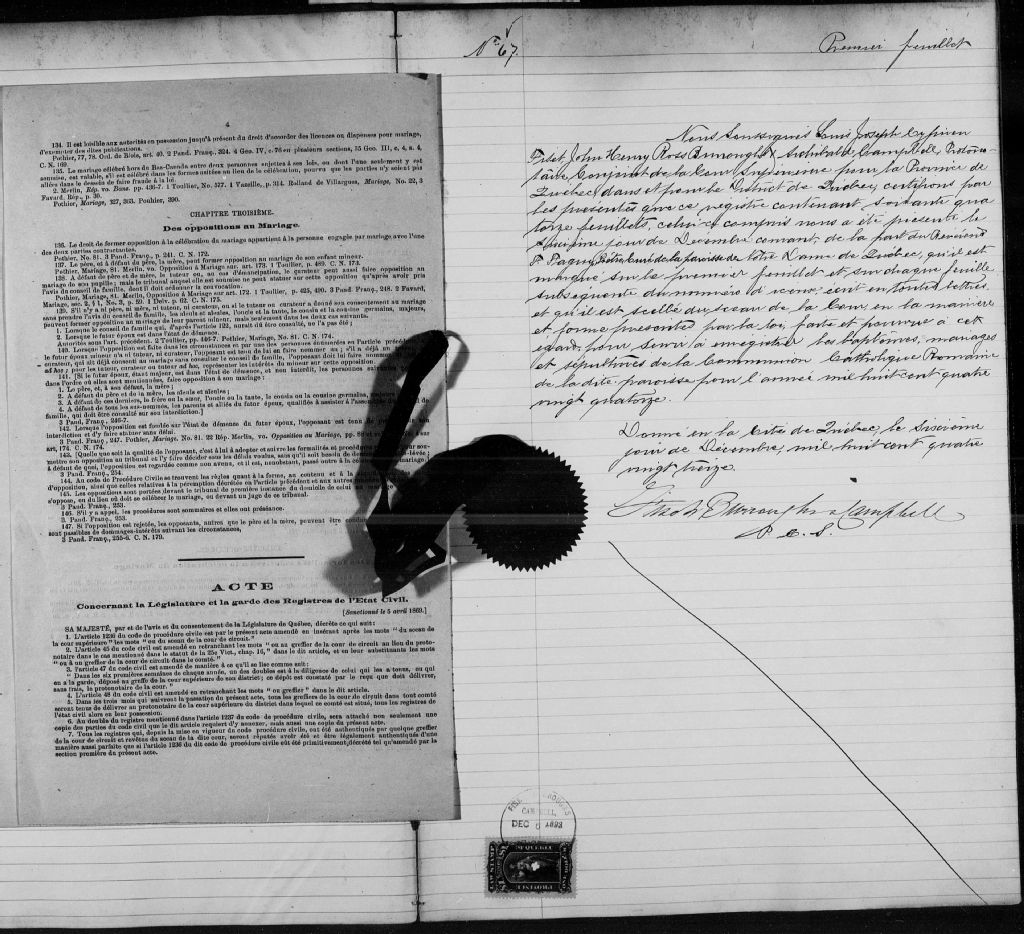 4
134. Il est loisible aux autorités en possession jusqu'à présent du droit d'accorder des licences ou dispenses pour mariage,
d'exempter des dites publications.
Pothier, 77, 78. Ord. de Blois, art. 40. 2 Pand. Franç., 324. 4 Geo. IV, c.
C. N. 169.
135. Le mariage célébré hors du Bas-Canada entre deux personnes sujettes à ses lois, ou dont l'une seulement y est
soumise, est valable, s'il est célébré dans les formes usitées au lieu de la célébration, pourvu que les parties n'y soient pas
allées dans le dessein de faire fraude à la loi.
2. Merlin, Rép. vo. Bans. pp. 436-7. 1 Toullier, No. 577. 1 Vazeille, p. Rolland de Villargues, Mariage, No. 22, 3
Favard, Rép., p.
Pothier, Mariage, 327, 363. Pouhier, 390.
CHAPITRE TROISIÈME.
Des oppositions au Mariage.
136. Le droit de former opposition à la célébration du mariage appartient à la personne engagée par mariage avec l'une
des deux parties contractantes.
Pothier, No. 81. 3 Pand. Franç., p. 241. C. N. 172.
137. Le père, et à défaut du père, la mère, peut former opposition au mariage de son enfant mineur.
Pothier, Mariage, 81. Merlin, vo. Opposition à Mariage sur art. 173. 1 Toullier, n. 489. C. N. 173.
138. A défaut de père et de mère, le tuteur et, au cas d'émancipation, le curateur peut aussi faire opposition au
mariage de son pupille; mais le tribunal auquel elle est soumise ne peut statuer sur cette opposition qu'après avoir pris
l'avis du conseil de famille, dont il doit ordonner la convocation.
Pothier, Mariage, 81. Merlin, Opposition à Mariage, sur art. 172. 1 Toullier, p. 425, 490. 3 Pand. Franç., 248. 2 Favard,
Mariage, sec. 2, § 1, No. 3, p. 59. 1 Delv. p. 62. C. N. 175.
139. S'il n'y a ni père, ni mère, ni tuteur, ni curateur, ou si le tuteur ou curateur a donné son consentement au mariage
sans prendre l'avis du conseil de famille, les aïeuls et aïeules, l'oncle et la tante, le cousin et la cousine germains, majeurs,
peuvent former opposition au mariage de leur parent mineur, mais seulement dans les deux cas suivants.
1. Lorsque le conseil de famille qui, d'après l'article 122, aurait dû être consulté, ne l'a pas été;
2. Lorsque le futur époux est dans l'état de démence.
Autorités sous l'art. précédent. 2 Toullier, pp. 446-7. Pothier, Mariage, No. 81. C. N. 174.
140. Lorsque l'opposition est faite dans les circonstances et par une des personnes dénommées en l'article précédent,
le futur époux mineur n'a ni tuteur, ni curateur, l'opposant est tenu de lui en faire nommer un; s'il a déjà un
curateur, qui ait déjà consenti au mariage sans consulter le conseil de famille, l'opposant doit lui faire nommer
ad hoc; pour les tuteur, curateur ou tuteur ad hoc, représenter les intérêts du mineur sur cette opposition.
141. [Si le futur époux, étant majeur, est dans l'état de démence, et non interdit, les personnes suivantes
dans l'ordre où elles sont mentionnées, faire opposition à son mariage:
1. Le père, et, à son défaut, la mère;
2. A défaut du père et de la mère, les aïeuls et aïeules;
3. A défaut de ces derniers, le frère ou la sœur, l'oncle ou la tante, le cousin ou la cousine germains, majeurs
4. A défaut de tous les sus-nommés, les parents et alliés du futur époux, qualifiés à assister à l'assemblée du conseil de
famille, qui doit être consulté sur son interdiction.]
3 Pand. Franç., 246-7.
142. Lorsque l'opposition est fondée sur l'état de démence du futur époux, l'opposant est tenu de
interdiction et d'y faire statuer sans délai.
3 Pand. Franç., 247. Pothier, Mariage, No. 81. 22 Rép. Merlin, vo. Opposition au Mariage,
art. 174.
143. [Quelle que soit la qualité de l'opposant, c'est à lui à adopter et suivre les formalités et procédures
mettre son opposition au tribunal et l'y faire décider sous les délais voulus, sans qu'il soit besoin de
à défaut de quoi, l'opposition est regardée comme non avenue, et il est, nonobstant, passé outre à la célébration du mariage.]
3 Pand. Franç., 254.
144. Au code de Procédure Civile se trouvent les règles quant à la forme, au contenu et à la
d'opposition, ainsi que celles relatives à la péremption décrétée en l'article précédent et aux autres
145. Les oppositions sont portées devant le tribunal de première instance du domicile de celui
s'oppose, ou du lieu où doit se célébrer le mariage, ou devant un juge de ce tribunal.
3 Pand. Franç., 253.
146. S'il y a appel, les procédures sont sommaires et elles ont préséance.
3. Pand. Franç., 253.
147. Si l'opposition est rejetée, les opposants, autres que le père et la mère, peuvent être
sont passibles de dommages-intérêts suivant les circonstances,
3 Pand. Franç., 255-6. C. N. 179.
ACTE
Concernant la Législature et la garde des Registres de l'Etat Civil.
[Sanctionné le 5 avril 1869.]
SA MAJESTÉ, par et de l'avis et du consentement de la Législature de Québec, décrète ce qui suit:
1. L'article 1236 du code de procédure civile est par le présent acte amendé en insérant après les mots "du sceau de
la cour supérieure" les mots "ou du sceau de la cour de circuit."
2. L'article 45 du code civil est amendé en retranchant les mots "ou au greffier de la cour de circuit au lieu du proto-
notaire dans le cas mentionné dans le statut de la 25e Vict., chap. 16," dans le dit article, et en leur substituant les mots
"ou à un greffier de la cour de circuit dans le comté."
3. l'article 47 du code civil est amendé de manière à ce qu'il se lise comme suit:
"Dans les six premières semaines de chaque année, un des doubles est à la diligence de celui qui les a tenus, ou qui
en a la garde, déposé au greffe de la cour supérieure de son district; ce dépôt est constaté par le reçu que doit délivrer,
sans frais, le protonotaire de la cour."
4. L'article 48 du code civil est amendé en retranchant les mots "ou greffier" dans le dit article.
5. Dans les trois mois qui suivront la passation du présent acte, tous les greffiers de la cour de circuit dans tout comté
seront tenus de délivrer au protonotaire de la cour supérieure du district dans lequel ce comté est situé, tous les registres de
l'état civil alors en leur possession.
6. Au double du registre mentionné dans l'article 1237 du code de procédure civile, sera attaché non seulement une
copie des parties du code civil que le dit article requiert d'y annexer, mais aussi une copie du présent acte.
7. Tous les registres qui, depuis la mise en vigueur du code procédure civile, ont été authentiqués par quelque greffier
de la cour de circuit et revêtus du sceau de la dite cour, seront réputés avoir été et être légalement authentiqués d'une
manière aussi parfaite que si l'article 1236 du dit code de procédure civile eût été primitivement décrété tel qu'amendé par la
section première du présent acte.
No. 67.
Premier feuillet
Nous Soussignés Louis Joseph Cyprien
Fiset, John Henry Ross Burroughs & Archibald Campbell, Protono-
taire Conjoint de la Cour Supérieure pour la Province de
Québec, dans et pour le District de Québec, certifions par
les présentes que ce registre contenant soixante qua
torze feuillets, celui-ci compris nous a été présenté le
sixième jour de Décembre courant, de la part du Révérend
F. Faguy, Ptre Curé de la paroisse de Notre Dame de Québec, qu'il est
marqué sur le premier feuillet et sur chaque feuille
subséquente du numéro d'icune, écrit en toutes lettres
et qu'il est scellé du sceau de la Cour, en la manière
et forme présentes par la loi, faite et pourvue à cet
égard, pour servir à enregistrer les baptêmes, mariages
et sépultures de la Communion Catholique Romaine
de la dite paroisse pour l'année mil huit cent quatre
vingt quatorze.
Donné en la Cité de Québec, le sixième
jour de Décembre, mil huit cent quatre
vingt treize.
Fiset Burroughs & Campbell
P. C. S.
DEC 6 1893
LAW STAMP
QUEBEC
PROVINCE